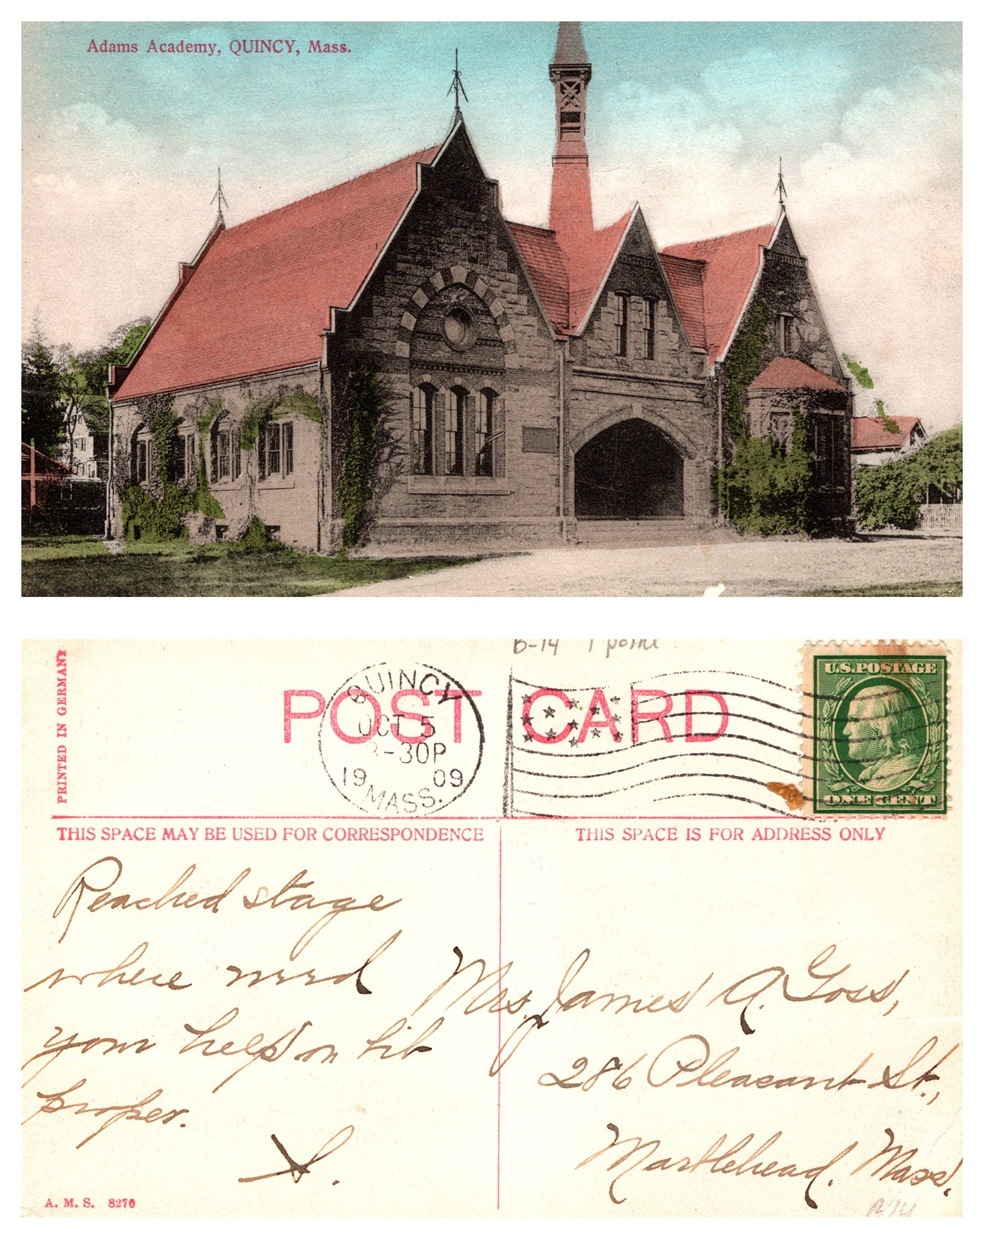 Adams Academy, QUINCY, Mass.
B-14 1 point
PRINTED IN GERMANY
POST CARD
QUINCY
OCT 5
-30P
19 09
MASS.
U.S. POSTAGE
ONE CENT
THIS SPACE MAY BE USED FOR CORRESPONDENCE
THIS SPACE IS FOR ADDRESS ONLY
Reached stage
where need
your help on hit
proper.
S.
Mrs. James A. Goss,
286 Pleasant St.,
Marblehead, Mass.
A. M. S. 8270
B-14